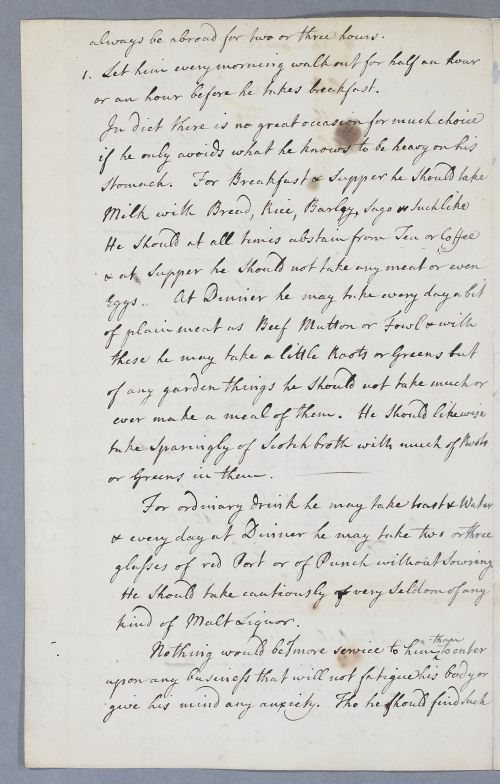 always be abroad for two or three hours.
1. Let him every morning walk out for half an hour
or an hour before he takes breakfast.
In diet there is no great occasion for much choice
if he only avoids what he knows to be heavy on his
Stomach. For Breakfast & Supper he should take
Milk with Bread, Rice, Barley, Sago or suchlike
He should at all times abstain from Tea or Coffee
& at Supper he should not take any meat or even
Eggs. At Dinner he may take every day a bit
of plain meat as Beef Mutton or Fowl & with
these he may take a little Roots or Greens but
of any garden things he should not take much or
ever make a meal of them. He should likewise
take Sparingly of Scotch broth with much of Roots
or Greens in them.
For ordinary drink he may take toast & Water
& every day at Dinner he may take two or three
glasses of red Port or of Punch without Sowring
He should take cautiously & very Seldom of any
kind of Malt Liquor.
Nothing would be of more service to him than to enter
upon any business that will not fatigue his body or
give his mind any anxiety. Tho he should find such